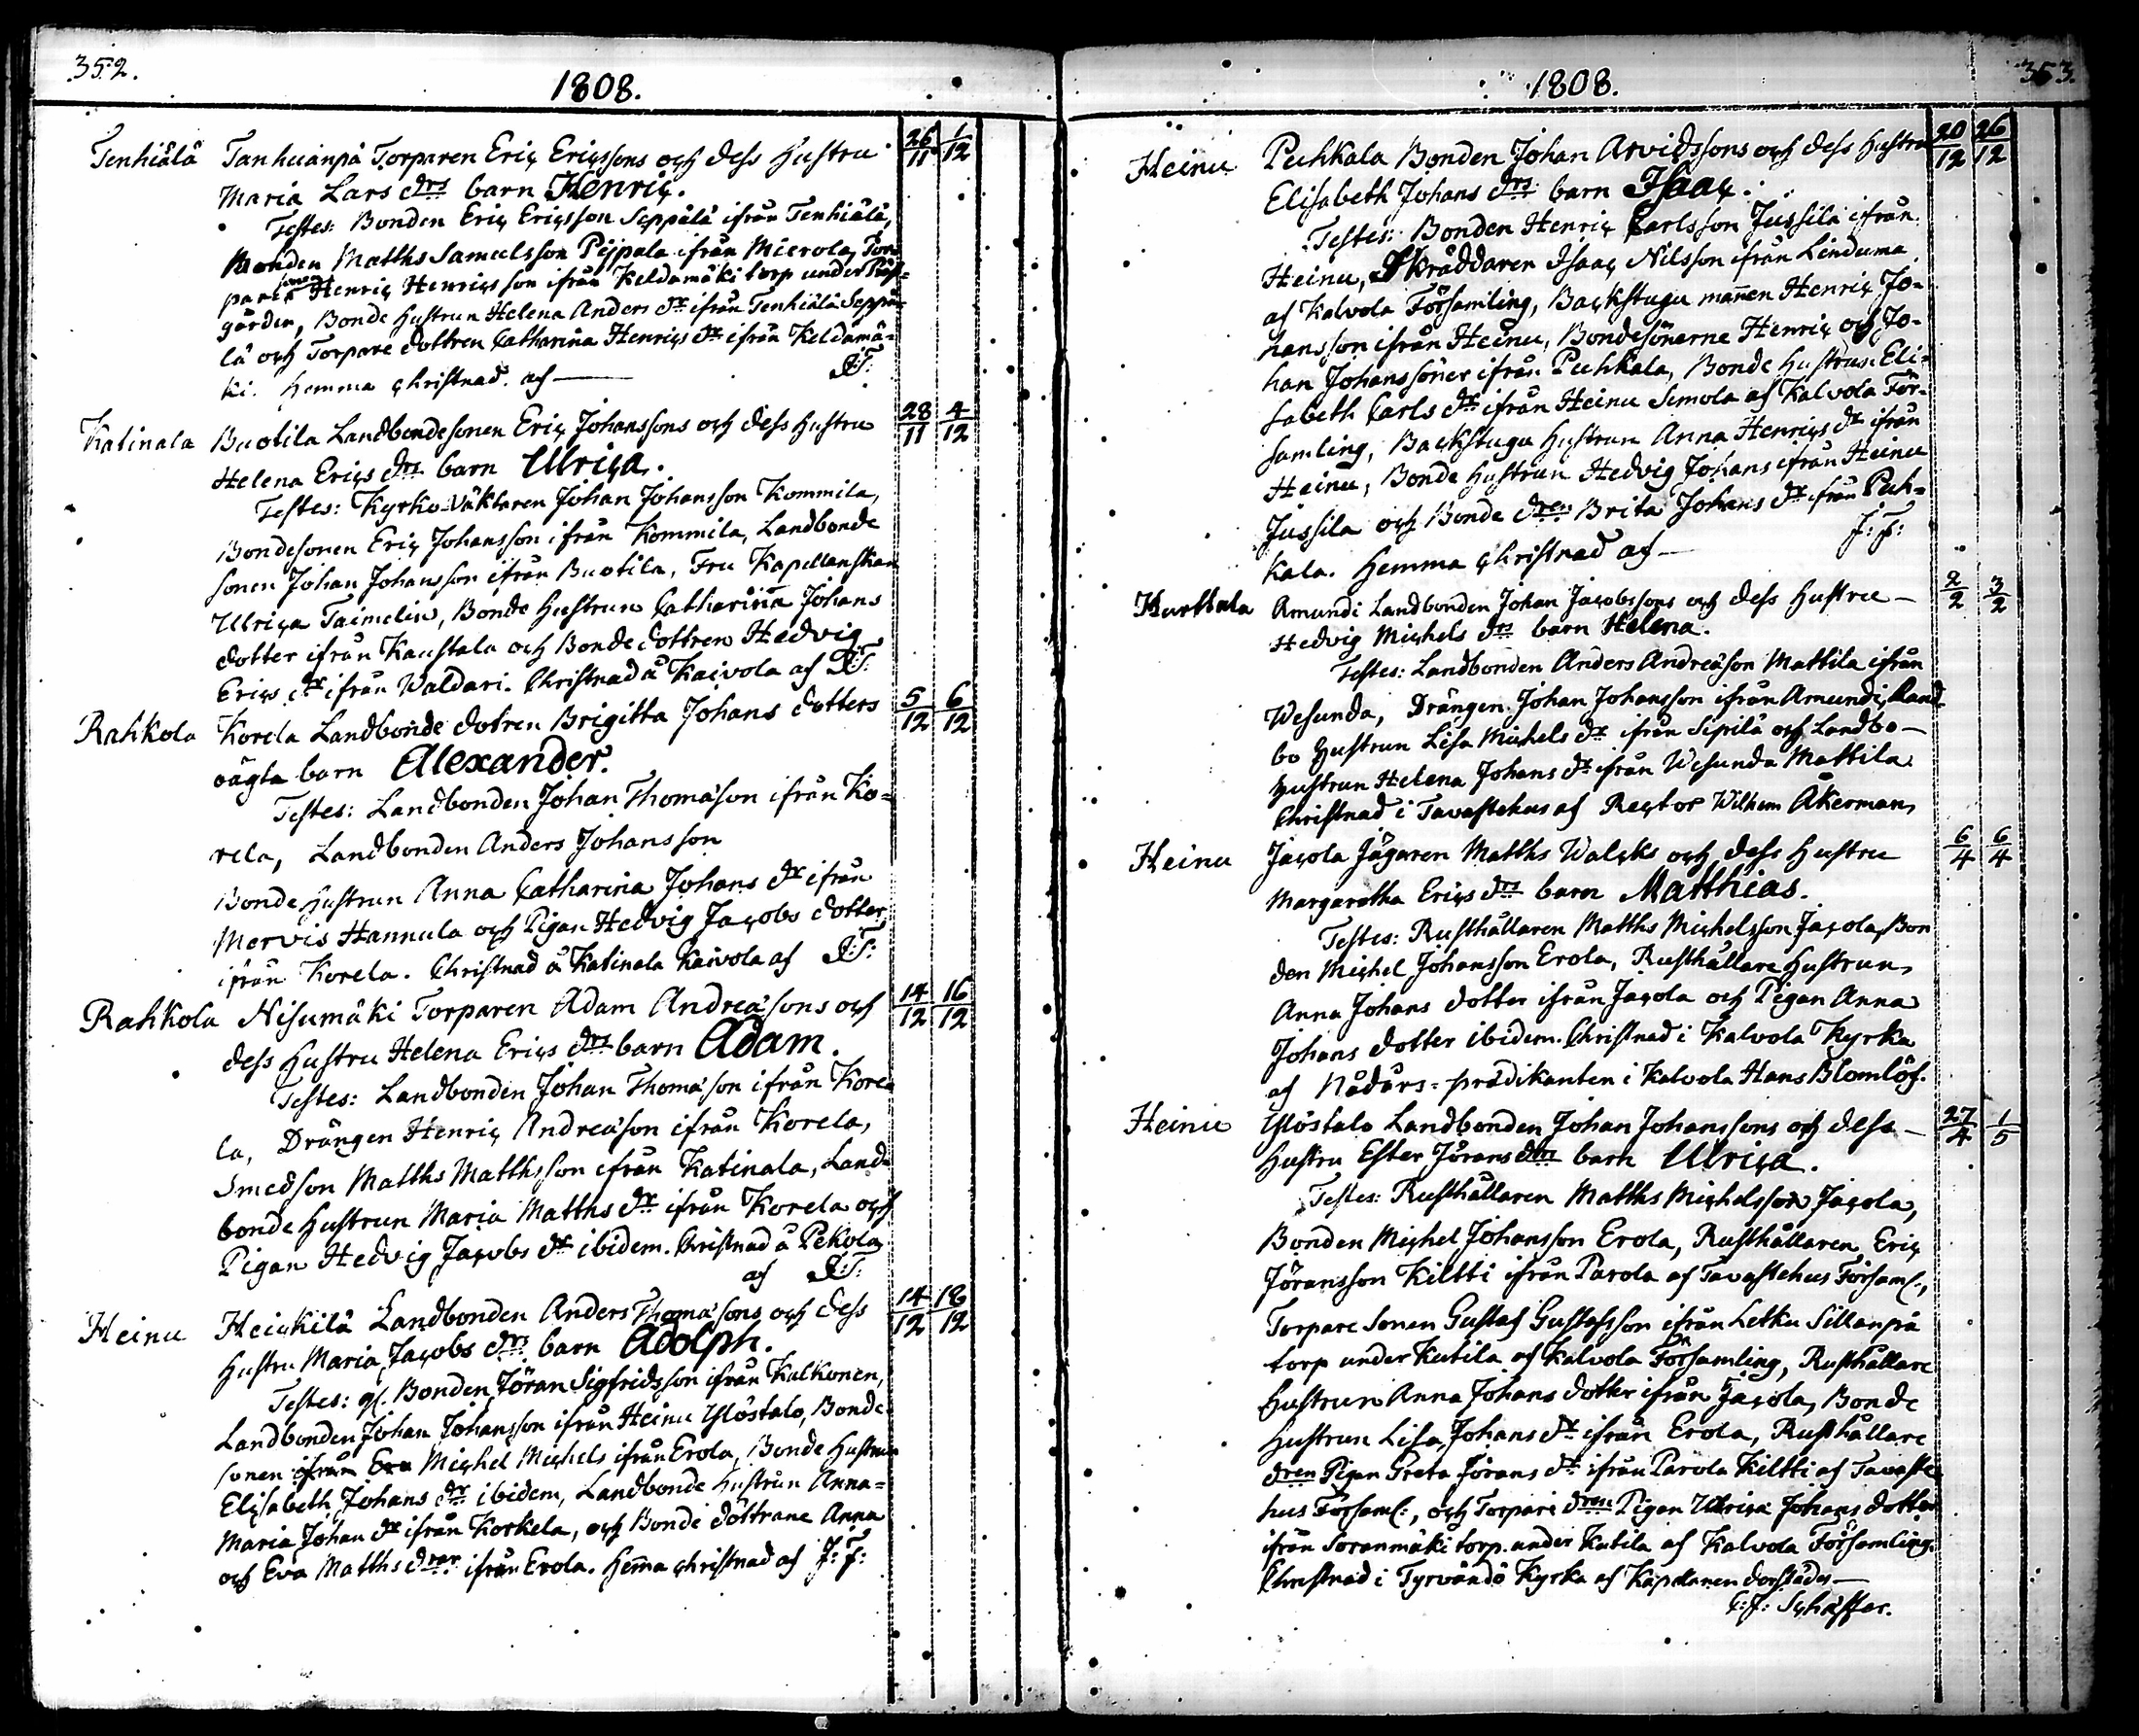 352.
1808.
Tenhiälä Tanhuanpä Torparen Eric Ericssons och dess Hustru 26/11 1/12
Maria Lars drs barn Henric.
Testes: Bonden Eric Ericsson Seppälä ifrån Tenhiälä,
Bonden Matths Samuelsson Pejpala ifrån Mierola, Tor-
paresonen Henric Henricsson ifrån Keldamäki torp under Präst-
gården, Bonde Hustrun Helena Anders dr ifrån Tenhiälä Seppä-
lä och Torpare dottren Catharina Henrics dr ifrån Keldamä-
ki. Hemma christnad af — J:T:
Katinala Buotila Landbondesonen Eric Johanssons och dess Hustru 28/11 4/12
Helena Erics drs barn Ulrica.
Testes: Kyrko-Väktaren Johan Johansson Kommila,
Bondesonen Eric Johansson ifrån Kommila, Landbonde
sonen Johan Johansson ifrån Buotila, Fru Kapellanskan
Ulrica Taimelin, Bonde Hustrun Catharina Johans
dotter ifrån Kaustala och Bonde dottren Hedvig
Erics dr ifrån Waldari. Christnad å Kaivola af J:T:
Rahkola Korela Landbonde dotren Brigitta Johans dotters 5/12 6/12
oägta barn Alexander.
Testes: Landbonden Johan Thomæson ifrån Ko-
rela, Landbonden Anders Johansson
Bonde Hustrun Anna Catharina Johans dr ifrån
Mervis Hannula och Pigan Hedvig Jacobs dotter
ifrån Korela. Christnad å Katinala Kaivola af J:T:
Rahkola Nisumäki Torparen Adam Andreæsons och 14/12 16/12
dess Hustru Helena Erics drs barn Adam.
Testes: Landbonden Johan Thomæson ifrån Kore
la, Drängen Henric Andreæson ifrån Korela,
Smedson Matths Matthsson ifrån Katinala, Land-
bonde Hustrun Maria Matths dr ifrån Korela och
Pigan Hedvig Jacobs dr ibidem. Christnad å Pekola
af J:T:
Heinu Heickilä Landbonden Anders Thomæsons och dess 14/12 18/12
Hustru Maria Jacobs drs barn Adolph.
Testes: gl. Bonden Jöran Sigfridsson ifrån Kalkonen,
Landbonden Johan Johansson ifrån Heinu Ylöstalo, Bonde
sonen ifrån Ero Michel Michels ifrån Erola, Bonde Hustrun
Elisabeth Johans dr ibidem, Landbonde Hustrun Anna-
Maria Johan dr ifrån Korkela, och Bonde döttrane Anna
och Eva Matths drar ifrån Erola. Hem̄a christnad af J:F:
353.
1808.
Heinu Puhkala Bonden Johan Arvidssons och dess Hustru 20/12 26/12
Elisabeth Johans drs barn Isaac.
Testes: Bonden Henric Carlsson Jussila ifrån
Heinu, Skräddaren Isaac Nilsson ifrån Lenduma
af Kalvola Församling, Backstugu man̄en Henric Jo-
hansson ifrån Heinu, Bondesönerne Henric och Jo-
han Johanssöner ifrån Puhkala, Bonde Hustrun Eli-
sabeth Carls dr ifrån Heinu Simola af Kalvola För-
samling, Backstugu Hustrun Anna Henrics dr ifrån
Heinu, Bonde Hustrun Hedvig Johans ifrån Heinu
Jussila och Bonde dren Brita Johans dr ifrån Puh-
kala. Hemma christnad af — J:F:
Kurttula Amundi Landbonden Johan Jacobssons och dess Hustru — 2/2 3/2
Hedvig Michels drs barn Helena.
Testes: Landbonden Anders Andreæson Mattila ifrån
Wesunda, Drängen Johan Johansson ifrån Amundi, Land
bo Hustrun Lisa Michels dr ifrån Sipilä och Landbo —
Hustrun Helena Johans dr ifrån Wesunda Mattila
Christnad i Tavastehus af Rector Wilhem Åkerman
Heinu Jacola Jägaren Matths Walcks och dess Hustru 6/4 6/4
Margaretha Erics drs barn Matthias.
Testes: Rusthållaren Matths Michelsson Jacola, Bon
den Michel Johansson Erola, Rusthållare Hustrun
Anna Johans dotter ifrån Jacola och Pigan Anna
Johans dotter ibidem. Christnad i Kalvola Kyrka
af Nådårs-prädikanten i Kalvola Hans Blomlöf.
Heinu Ylöstalo Landbonden Johan Johanssons och dess — 27/4 1/5
Hustru Ester Jörans drs barn Ulrica.
Testes: Rusthållaren Matths Michelsson Jacola,
Bonden Michel Johansson Erola, Rusthållaren Eric
Jöransson Kiltti ifrån Parola af Tavastehus Församl:,
Torpare sonen Gustaf Gustafsson ifrån Letku Sillanpä
torp under Kutila af Kalvola Församling, Rusthållare
Hustrun Anna Johans dotter ifrån Jacola, Bonde
Hustrun Lisa Johans dr ifrån Erola, Rusthållare
dren Pigan Greta Jörans dr ifrån Parola Kiltti af Tavaste
hus Församl:, och Torpare dren Pigan Ulrica Johans dotter
ifrån Soranmäki torp under Kutila af Kalvola Församling.
Christnad i Tyrvändö Kyrka af Kapellanen dorstädes —
C:J: Schäffer.